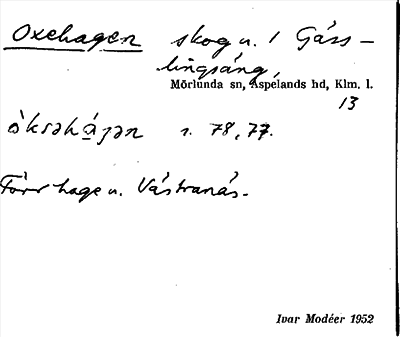 Oxehagen skog u. 1 Gåss-
lingsäng,
Mörlunda sn, Aspelands hd, Klm. l.
13
ò̀ksəhá̱gən s. 78, 77.
Förr hage u. Västranäs.
Ivar Modéer 1952